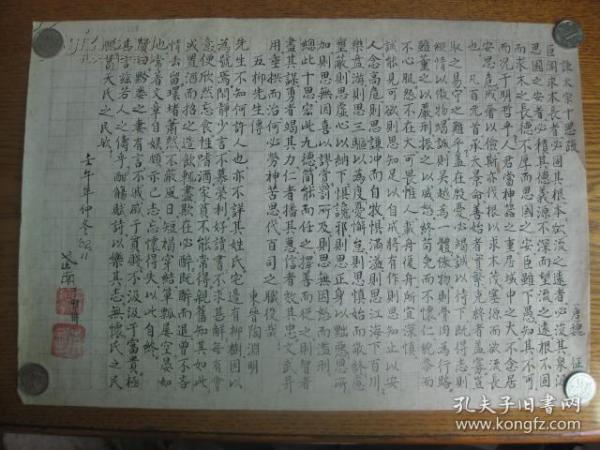 諫太宗十思疏
唐 魏徵
臣聞求木長者必固其根本欲流之遠者必浚其泉源
思國之安者必積其德義源不深而望流之遠根不固
而求木之長德不厚而思國之安臣雖下愚知其不可
而況于明哲乎人君當神器之重居域中之大不念居
安思危戒奢以儉斯亦伐根以求木茂塞源而欲流長
也凡百元首承天景命善始者實繁克終者蓋寡豈
取之易守之難乎蓋在殷憂必竭誠以待下既得志則
縱情以傲物竭誠則吳越為一體傲物則骨肉為行路
雖董之以嚴刑振之以威怒終苟免而不懷仁貌恭而
不心服怨不在大可畏惟人載舟覆舟所宜深慎
誠能見可欲則思知足以自戒將有作則思知止以安
人念高危則思謙沖而自牧懼滿溢則思江海下百川
樂盤游則思三驅以為度憂懈怠則思慎始而敬終慮
壅蔽則思虛心以納下懼讒邪則思正身以黜惡恩所
加則思無因喜以謬賞罰所及則思無因怒而濫刑
總此十思宏此九德簡能而任之擇善而從之則智者
盡其謀勇者竭其力仁者播其惠信者效其忠文武并
用垂拱而治何必勞神苦思代百司之職役哉
五柳先生傳
東晉陶淵明
先生不知何許人也亦不詳其姓氏宅邊有柳樹因以
為號焉閑靜少言不慕榮利好讀書不求甚解每有會
意便欣然忘食性嗜酒家貧不能常得親舊知其如此
或置酒而招之造飲輒盡期在必醉既醉而退曾不吝
情去留環堵蕭然不蔽風日短褐穿結簞瓢屢空晏如
也常著文章自娛頗示己志忘懷得失以此自終
贊曰黔婁之妻有言不戚戚于貧賤不汲汲于富貴極
其言茲若人之儔乎酣觴賦詩以樂其志無懷氏之民
歟葛天氏之民歟
壬午年仲冬
孔夫子旧书网
www.kongfz.com